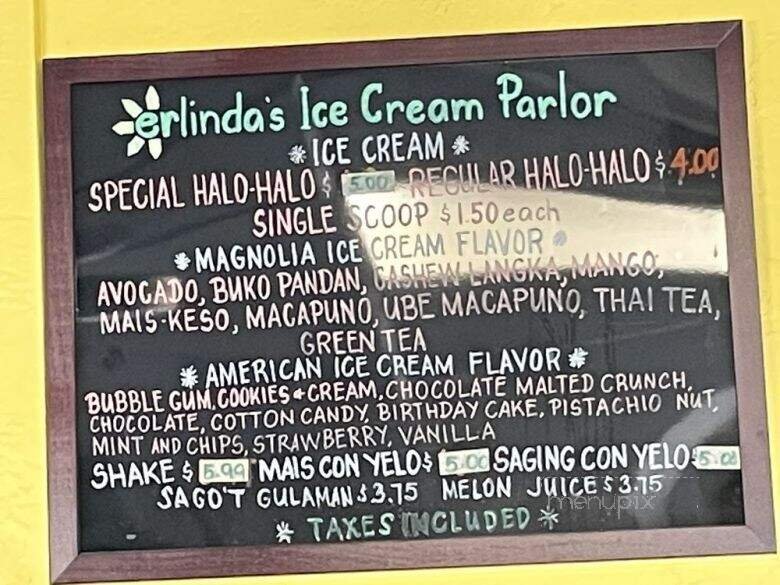 erlinda's Ice Cream Parlor
* ICE CREAM *
SPECIAL HALO-HALO $ 5.00 REGULAR HALO-HALO $ 4.00
SINGLE SCOOP $1.50 each
* MAGNOLIA ICE CREAM FLAVOR *
AVOCADO, BUKO PANDAN, CASHEW LANGKA, MANGO,
MAIS-KESO, MACAPUNO, UBE MACAPUNO, THAI TEA,
GREEN TEA
* AMERICAN ICE CREAM FLAVOR *
BUBBLE GUM, COOKIES + CREAM, CHOCOLATE MALTED CRUNCH,
CHOCOLATE, COTTON CANDY, BIRTHDAY CAKE, PISTACHIO NUT,
MINT AND CHIPS, STRAWBERRY, VANILLA
SHAKE $ 5.99 MAIS CON YELO $ 5.00 SAGING CON YELO $ 5.00
SAGO'T GULAMAN $3.75 MELON JUICE $3.75
menupix
* TAXES INCLUDED *